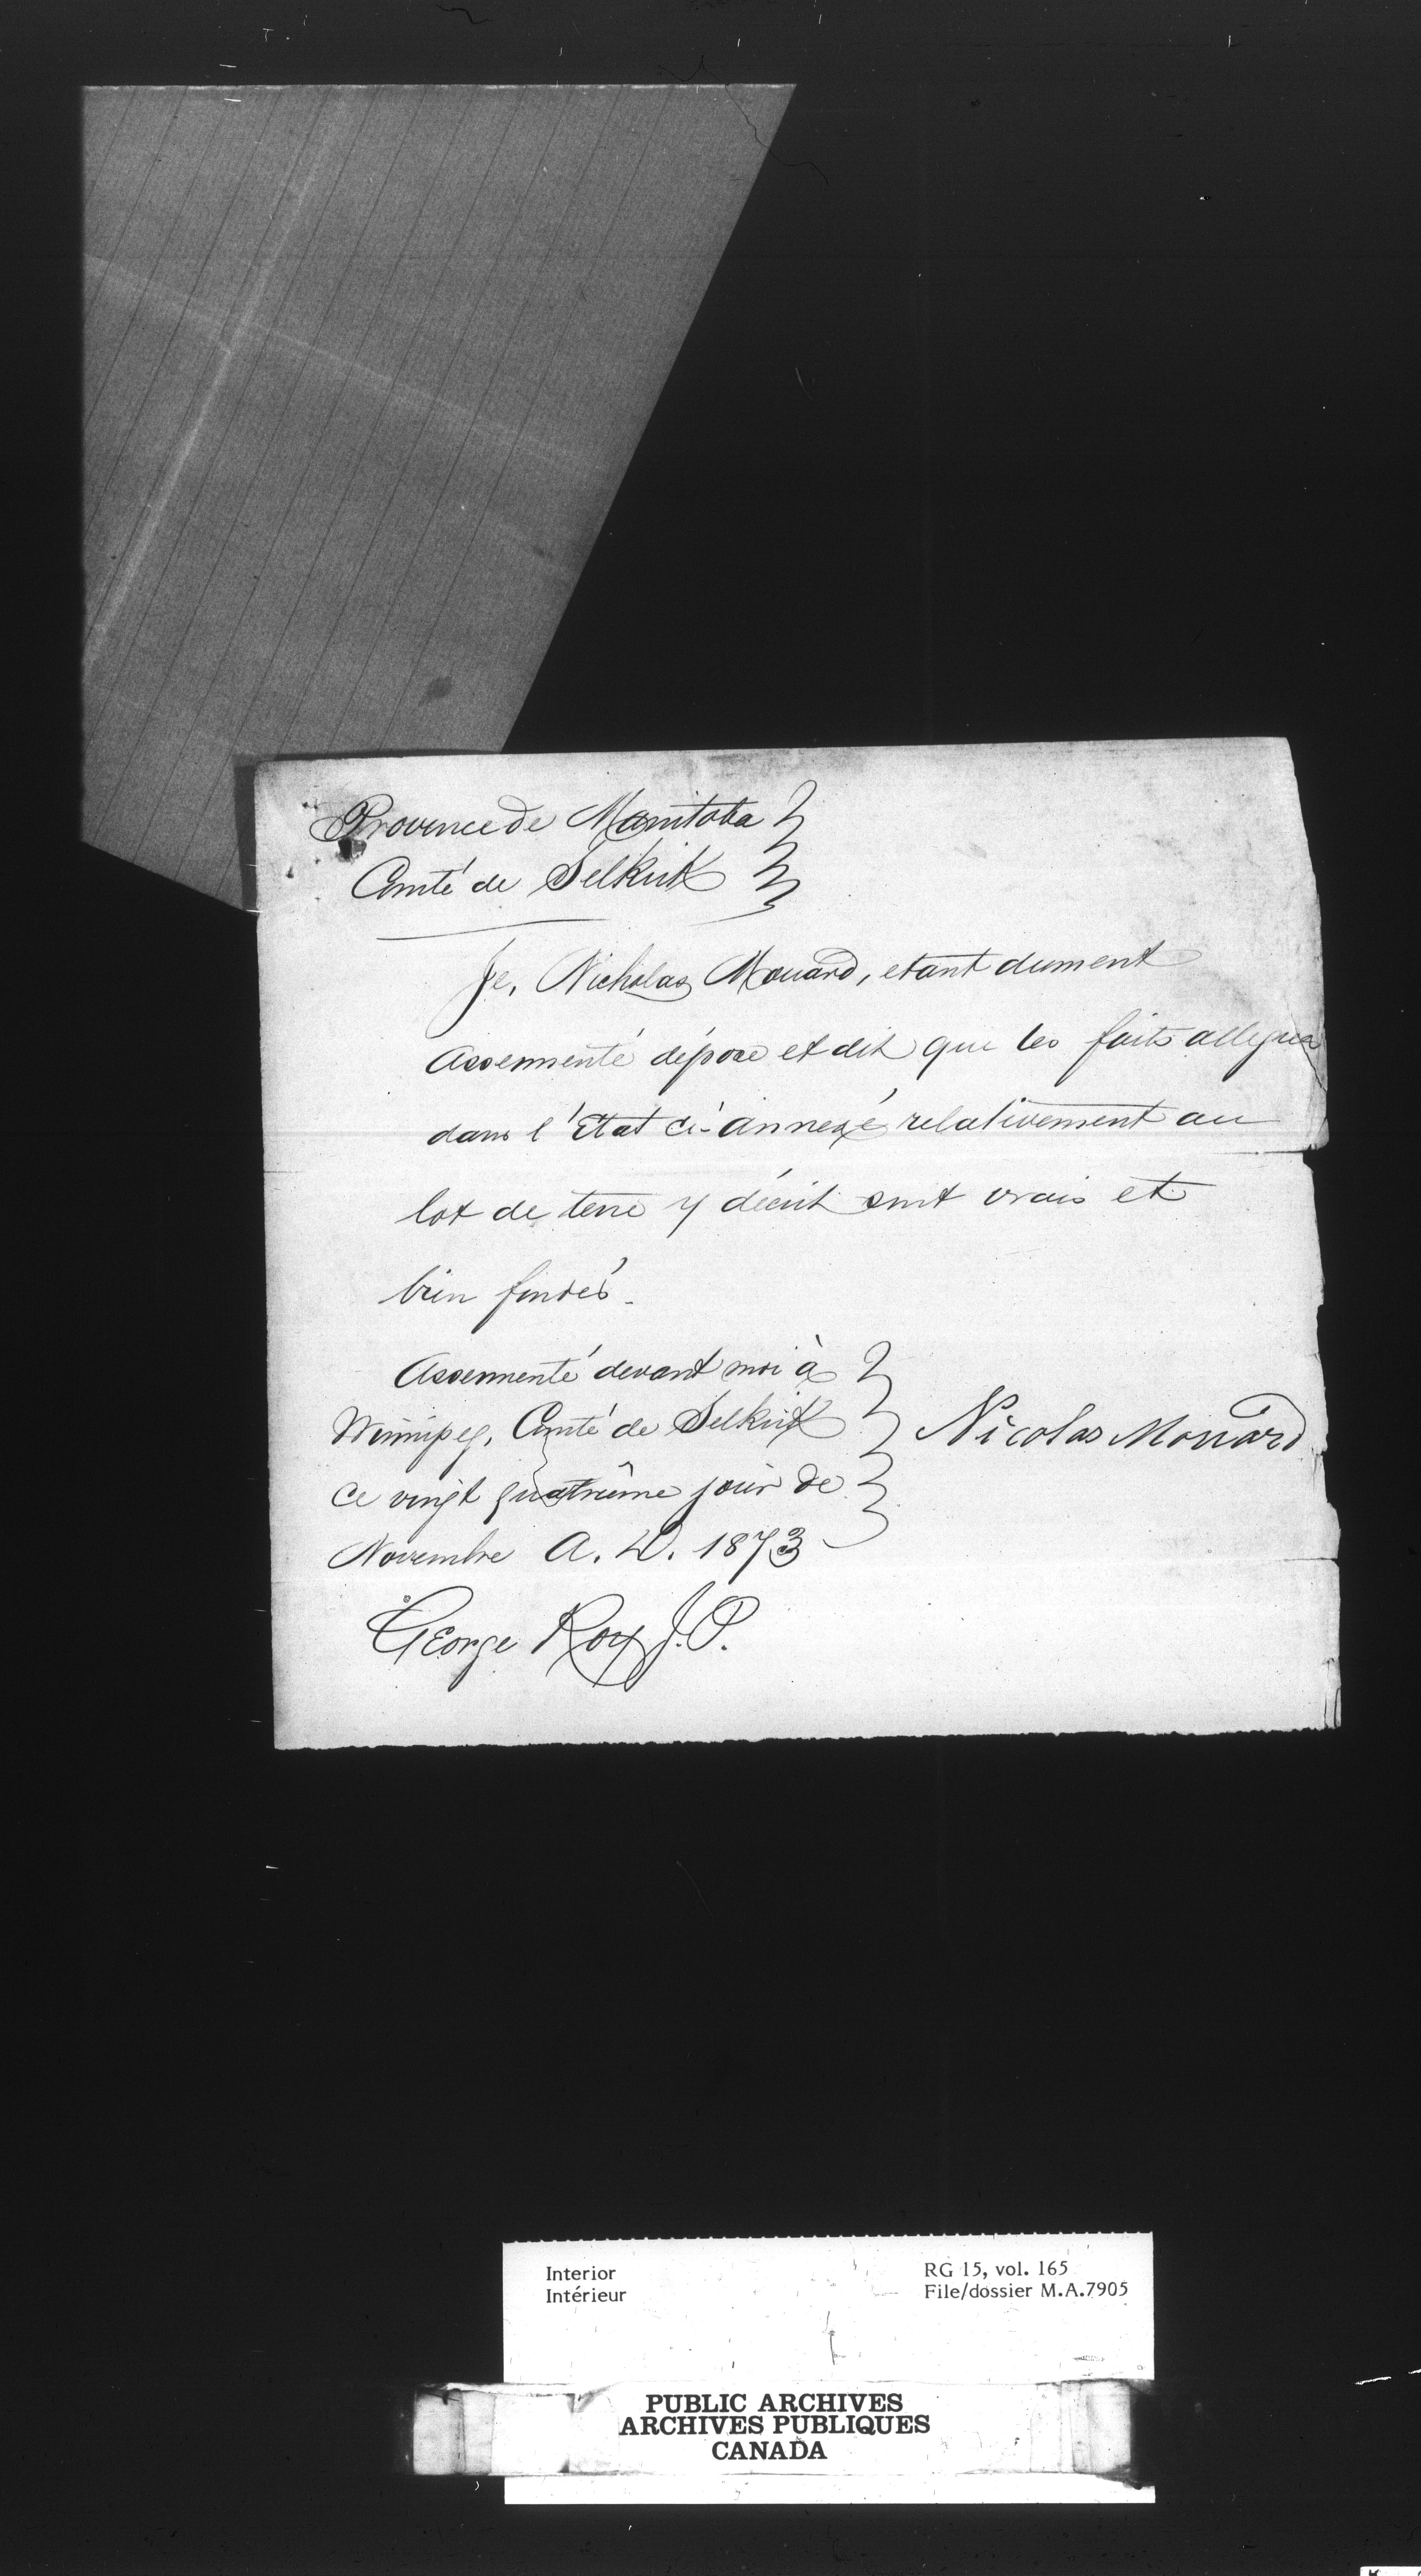 Province de Manitoba
Comté de Selkirk
Je, Nicholas Mouard, etant dument
assermenté dépose et dit que les faits allegués
dans l'Etat ci-annexé relativement au
lot de terre y décrit sont vrais et
bien fondés.
Assermenté devant moi à
Winnipeg, Comté de Selkirk
ce vingt quatrième jour de
Novembre A. D. 1873
Nicolas Mouard
George Roy J.P.
Interior
Intérieur
RG 15, vol. 165
File/dossier M.A.7905
PUBLIC ARCHIVES
ARCHIVES PUBLIQUES
CANADA